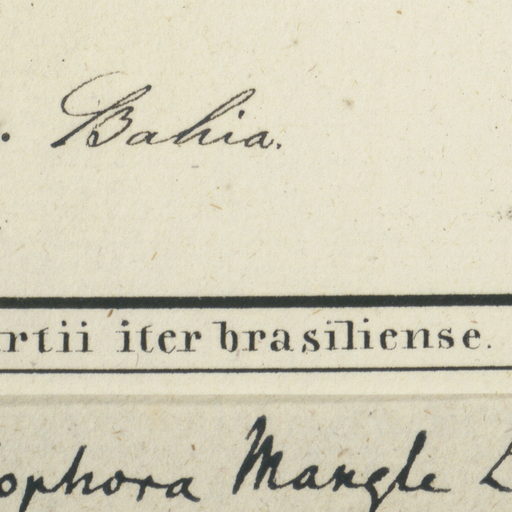 . Bahia.
rtii iter brasiliense.
ophora Mangle L